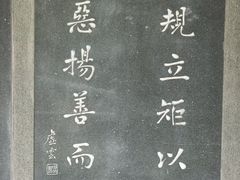 規立矩以
惡揚善而
虛雲